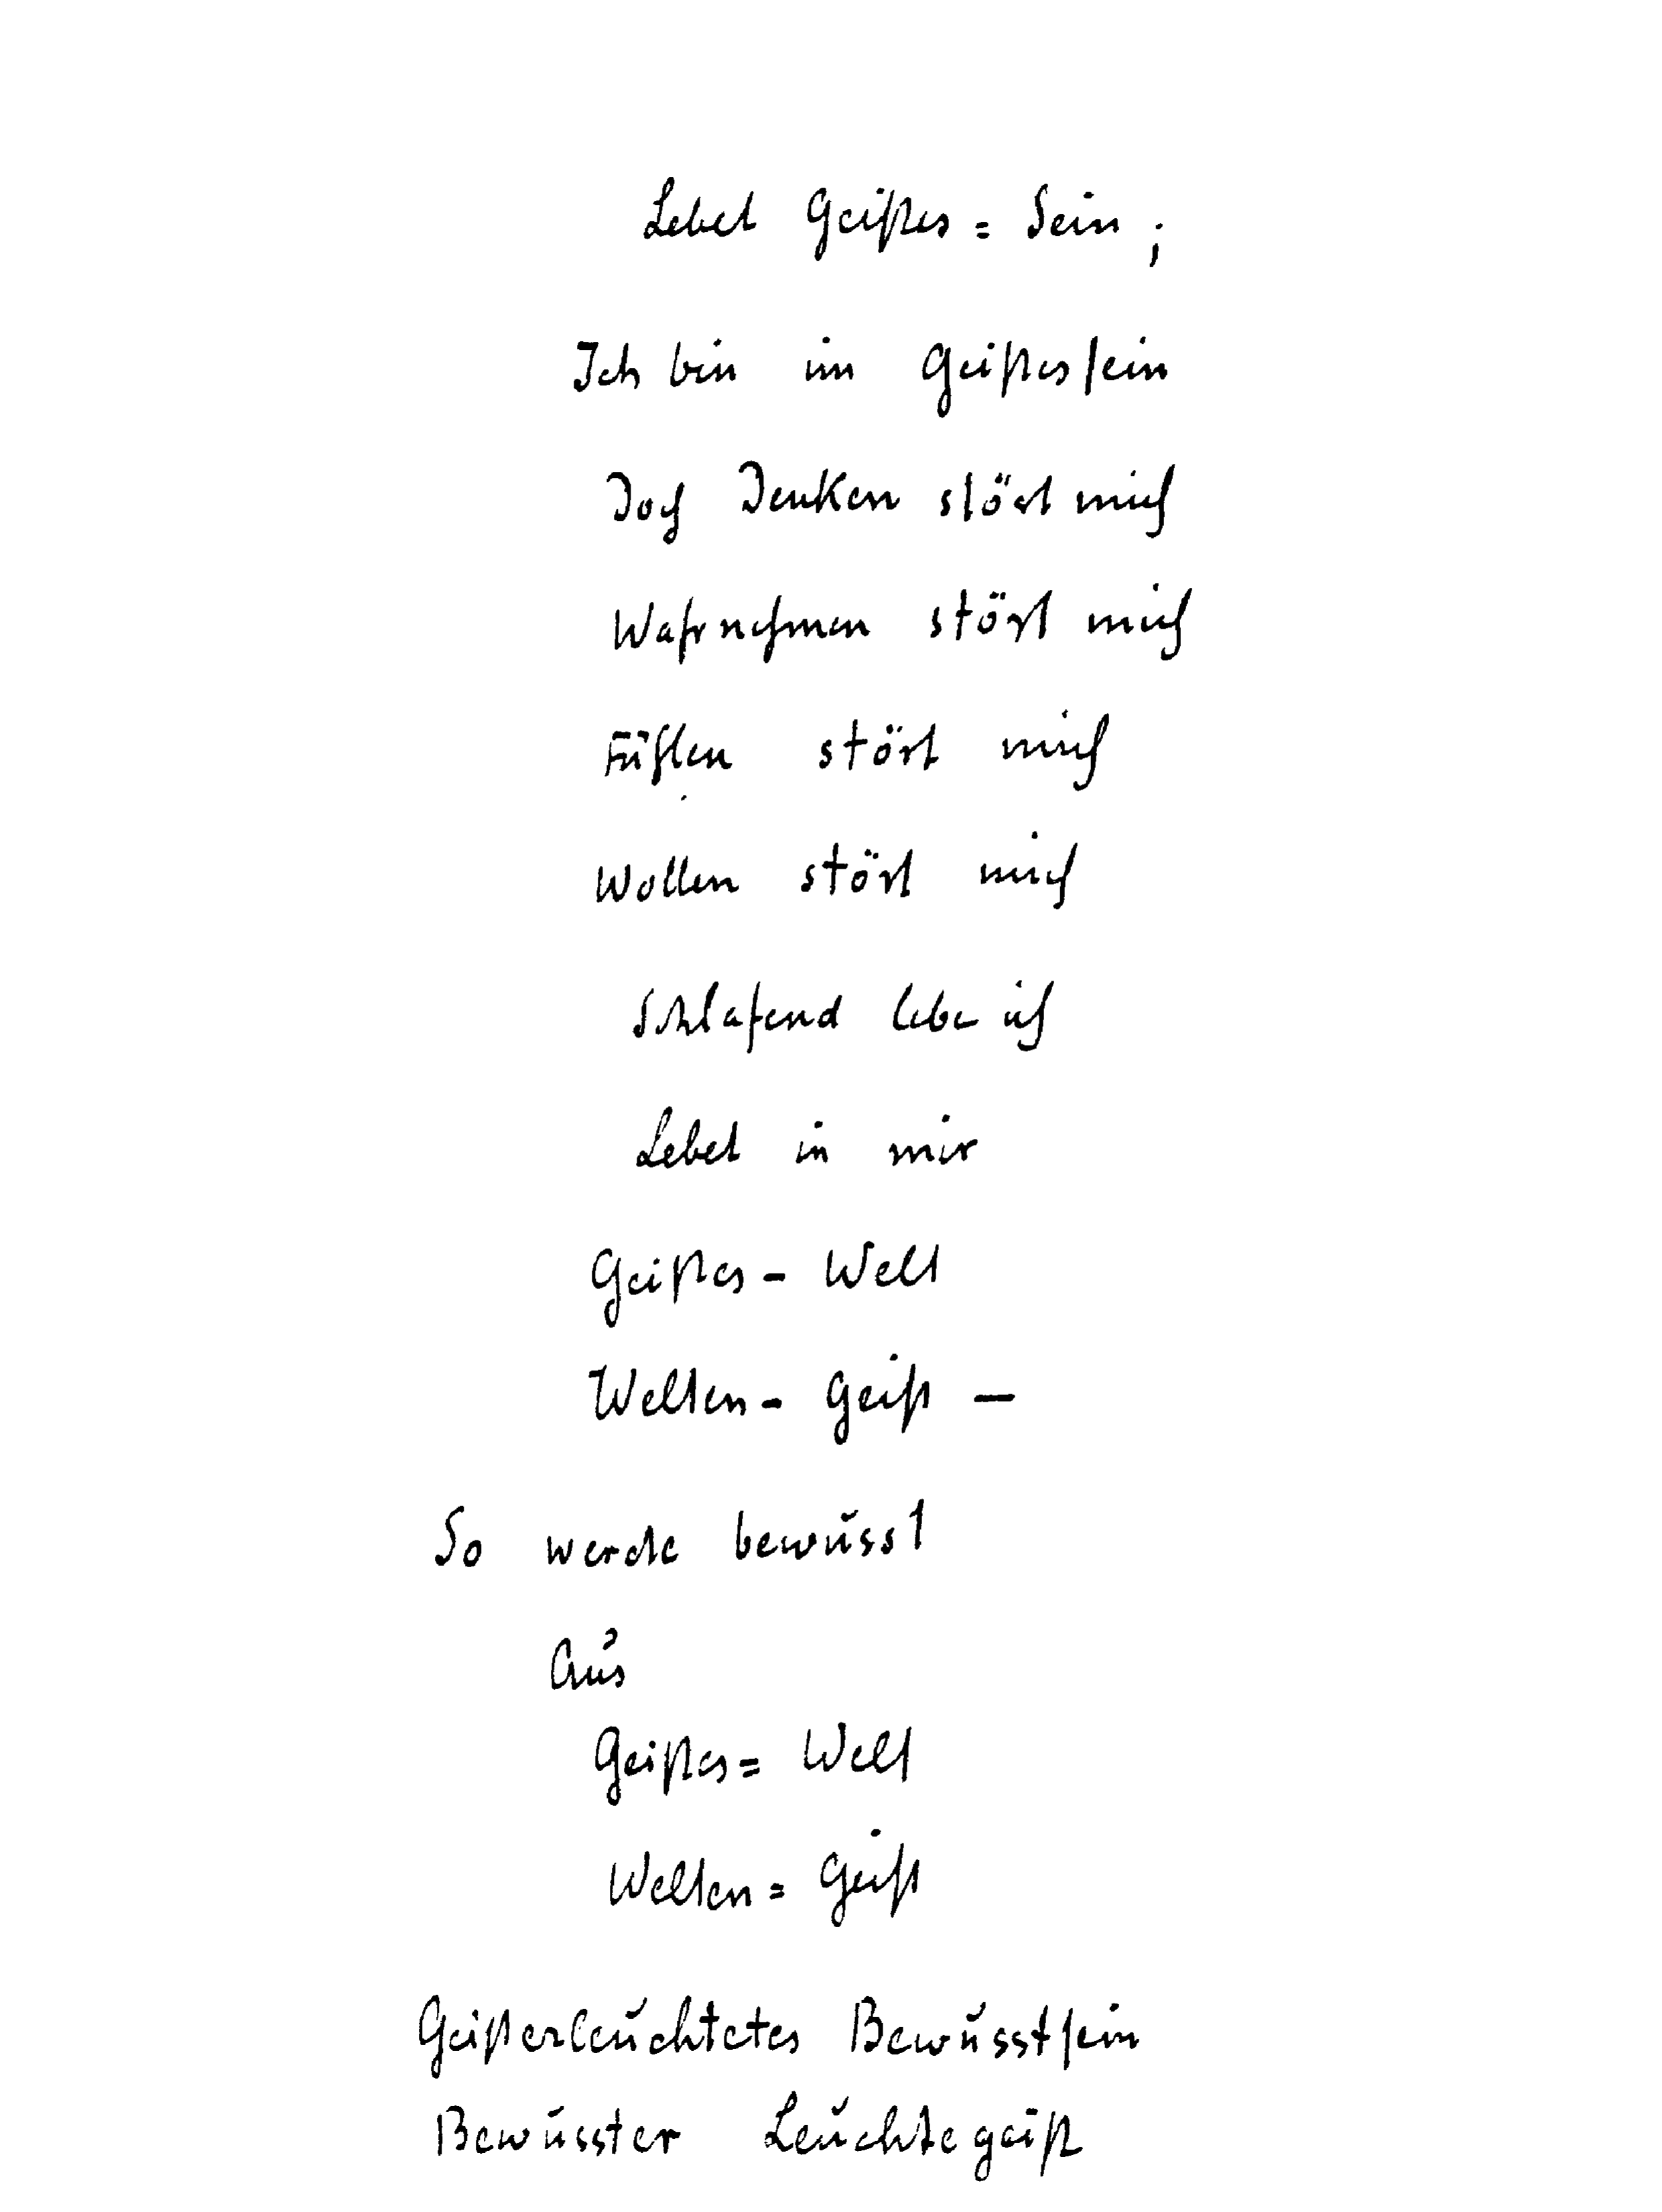 Lebet Geistes = Sein ;
Ich bin im Geistessein
Doch Denken stört mich
Wahrnehmen stört mich
Fühlen stört mich
Wollen stört mich
Schlafend lebe ich
Lebet in mir
Geistes - Welt
Welten - Geist —
So werde bewusst
Aus
Geistes = Welt
Welten = Geist
Geisterleuchtetes Bewusstsein
Bewusster Leuchtegeist